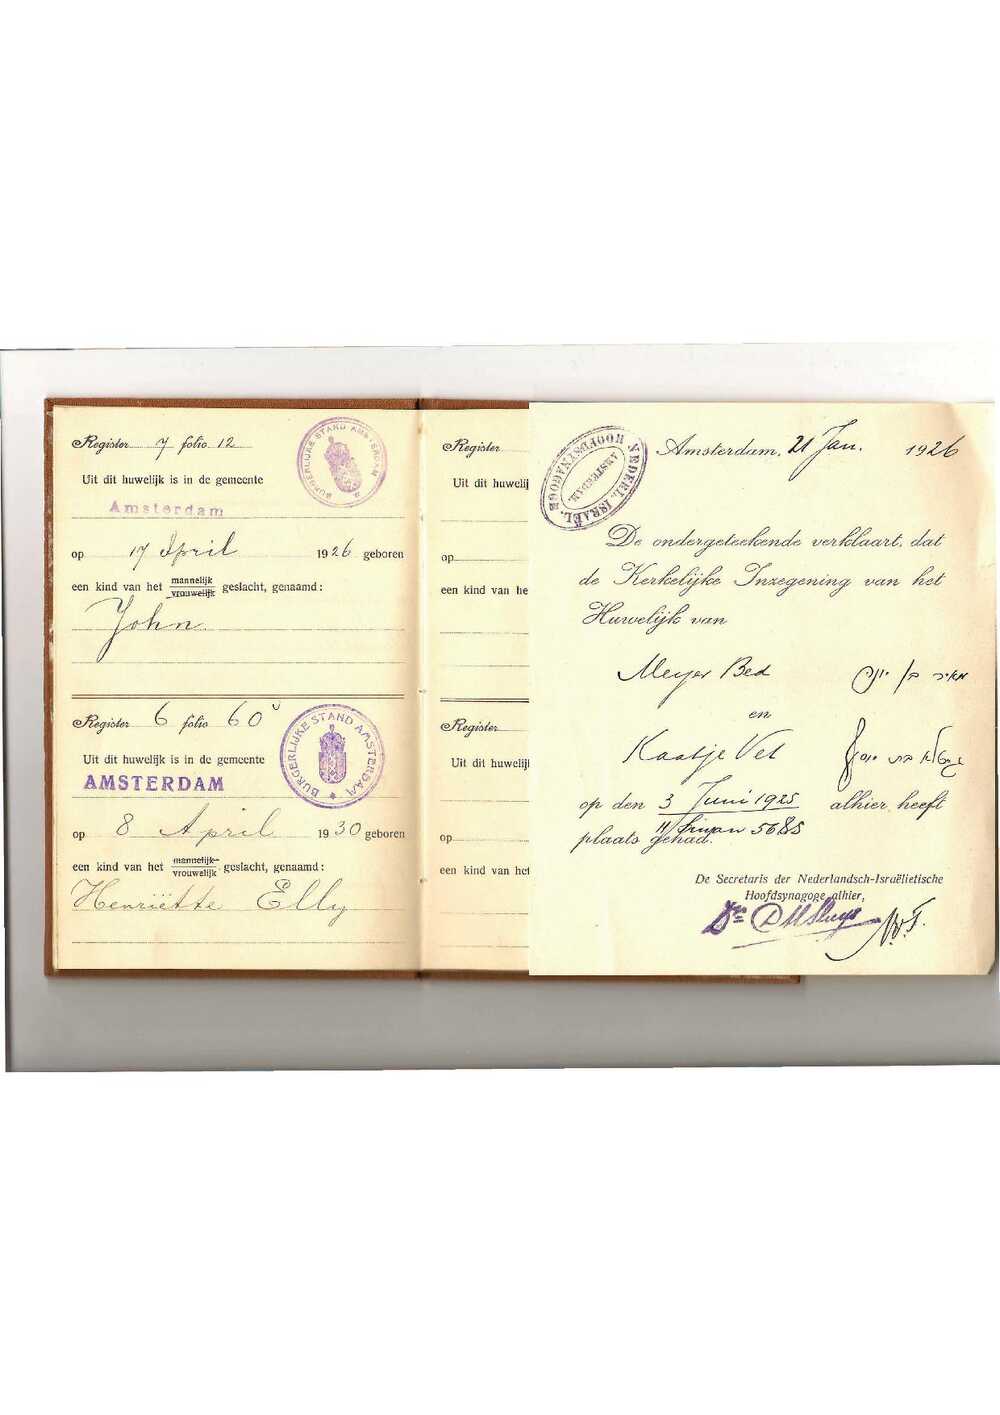 Register 7 folio 12
BURGERLIJKE STAND AMSTERDAM
Uit dit huwelijk is in de gemeente
Amsterdam
op 17 April 1926 geboren
een kind van het mannelijk vrouwelijk geslacht, genaamd:
John
Register 6 folio 60
BURGERLIJKE STAND AMSTERDAM
Uit dit huwelijk is in de gemeente
AMSTERDAM
op 8 April 1930 geboren
een kind van het mannelijk vrouwelijk geslacht, genaamd:
Henriëtte Elly
Register
Uit dit huwelij
op
een kind van he
Register
Uit dit huwelij
op
een kind van het
NEDERL. ISRAËL. HOOFDSYNAGOGE
AMSTERDAM.
Amsterdam, 21 Jan. 1926
De ondergeteekende verklaart, dat
de Kerkelijke Inzegening van het
Huwelijk van
Meyer Bed מאיר בן יוסף
en
Kaatje Vet בת יוסף
op den 3 Juni 1925 alhier heeft
11 Siwan 5685
plaats gehad.
De Secretaris der Nederlandsch-Israëlietische
Hoofdsynagoge alhier,
Dr D M Sluys